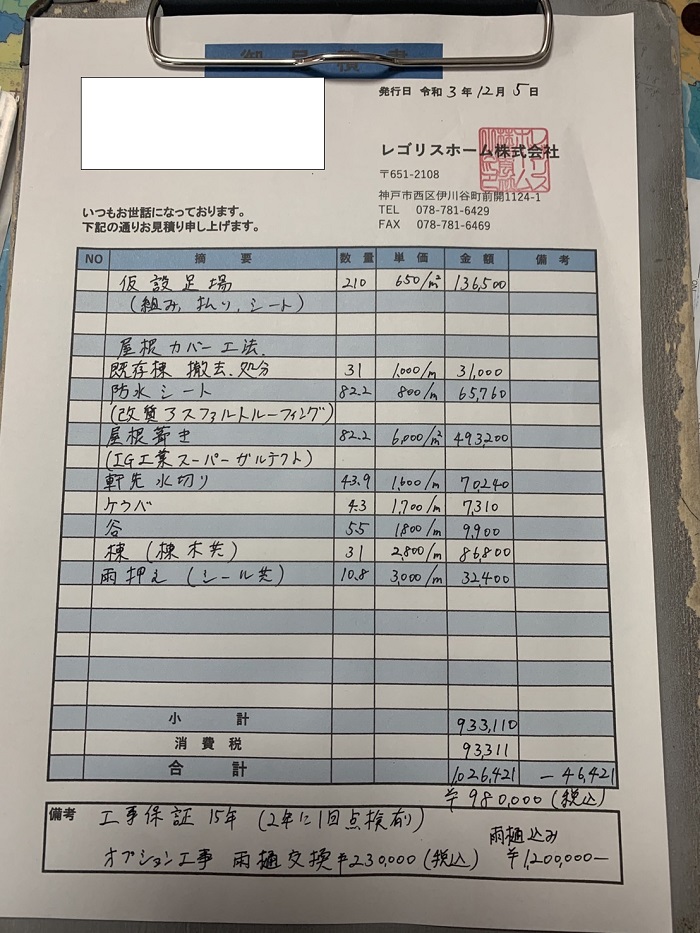 御見積書
発行日 令和 3 年 12 月 5 日
レゴリスホーム株式会社
〒651-2108
神戸市西区伊川谷町前開1124-1
TEL 078-781-6429
FAX 078-781-6469
いつもお世話になっております。
下記の通りお見積り申し上げます。
NO 摘要 数量 単価 金額 備考
仮設足場 210 650/m² 136,500
(組み、払い、シート)
屋根カバー工法.
既存棟 撤去.処分 31 1,000/m 31,000
防水シート 82.2 800/m 65,760
(改質アスファルトルーフィング)
屋根葺き 82.2 6,000/m² 493,200
(IG工業スーパーガルテクト)
軒先水切り 43.9 1,600/m 70,240
ケラバ 4.3 1,700/m 7,310
谷 5.5 1,800/m 9,900
棟 (棟木共) 31 2,800/m 86,800
雨押え (シール共) 10.8 3,000/m 32,400
小計 933,110
消費税 93,311
合計 1,026,421 -46,421
¥980,000 (税込)
備考 工事保証 15年 (2年に1回点検有)
雨樋込み
オプション工事 雨樋交換 ¥230,000 (税込) ¥1,200,000-